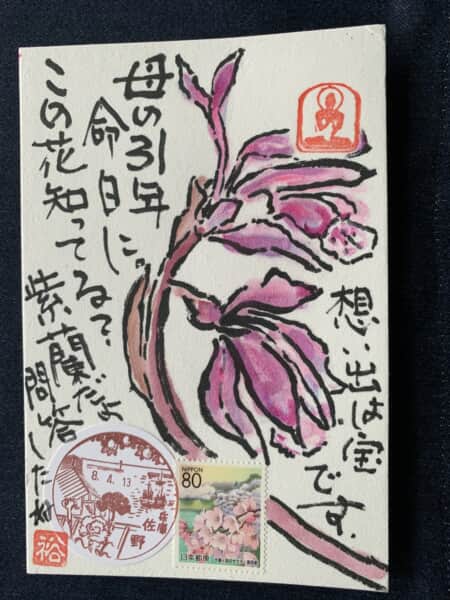 想い出は宝
です。
母の31年
命日に。
この花知ってる?
紫蘭だよ
問答したね
裕
8.4.13
兵庫
佐野
NIPPON
80
日本郵便